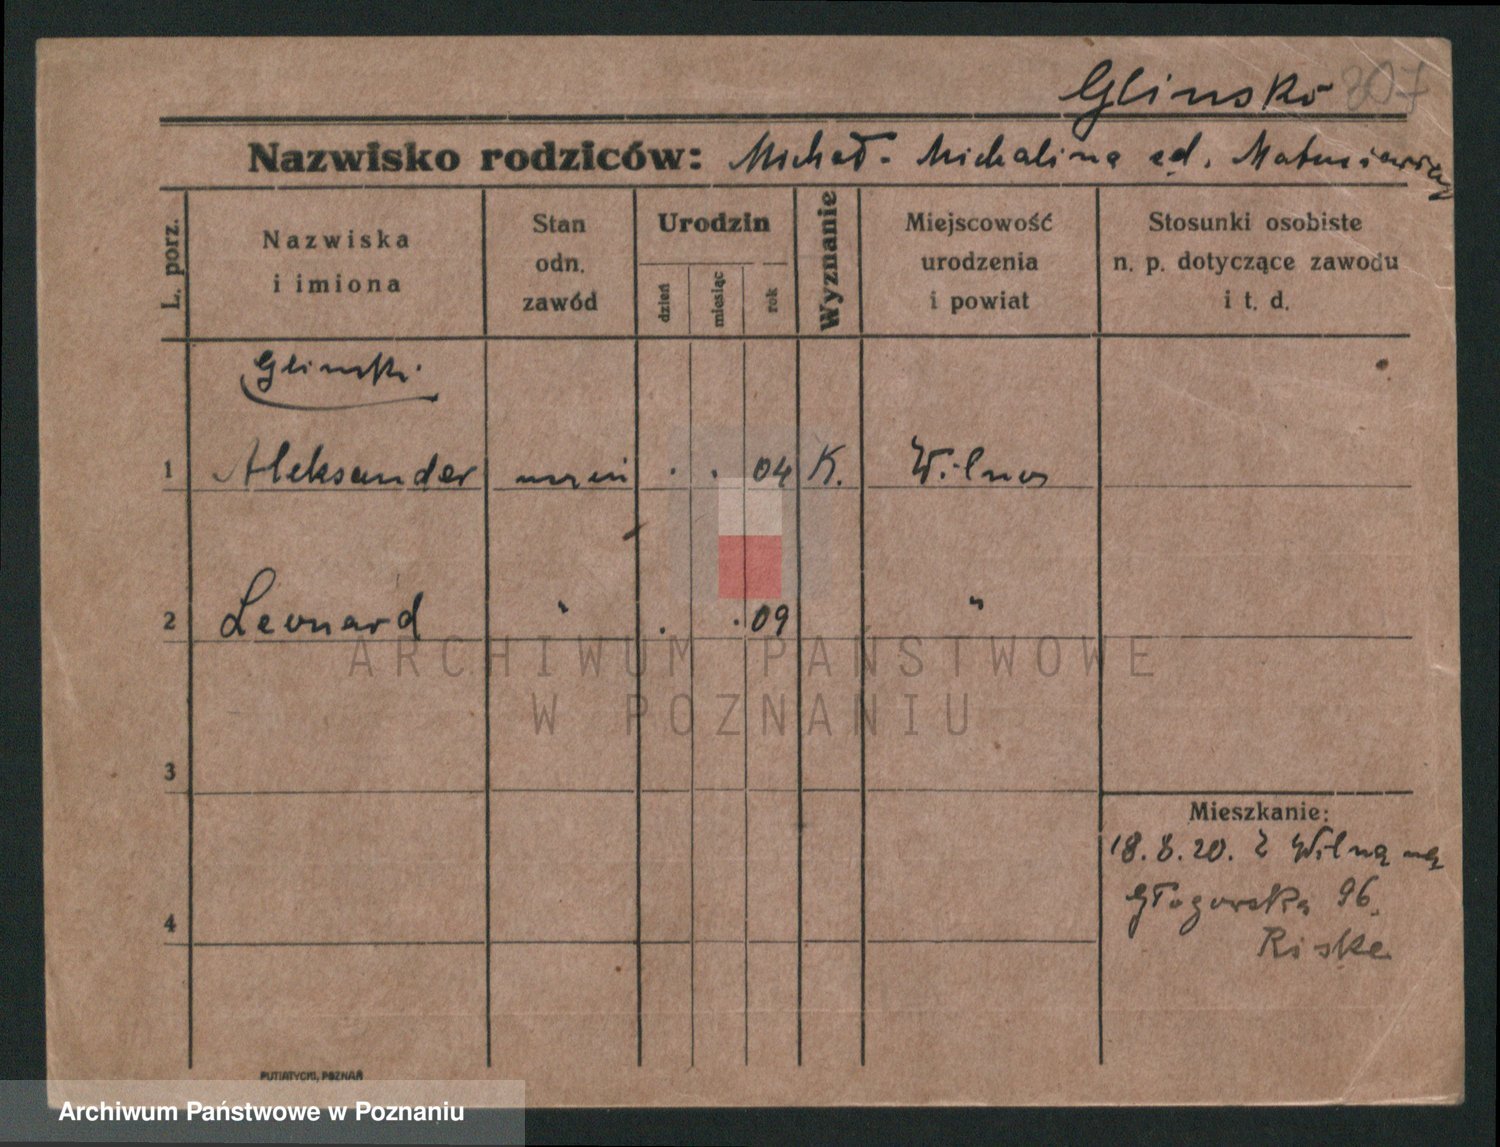 Glinsko 807
Nazwisko rodziców: Michał - Michalina
L. porz.
Nazwiska
i imiona
Stan
odn.
zawód
Urodzin
dzień
miesiąc
rok
Wyznanie
Miejscowość
urodzenia
i powiat
Stosunki osobiste
n. p. dotyczące zawodu
i t. d.
Glinski
1 Aleksander uczeń . . 04 K. Wilno
2 Leonard " . . 09 "
3
4
Mieszkanie:
18.8.20. z Wilna na
Głogowska 96.
Riske
PUTIATYCKI, POZNAŃ
ARCHIWUM PAŃSTWOWE
W POZNANIU
Archiwum Państwowe w Poznaniu